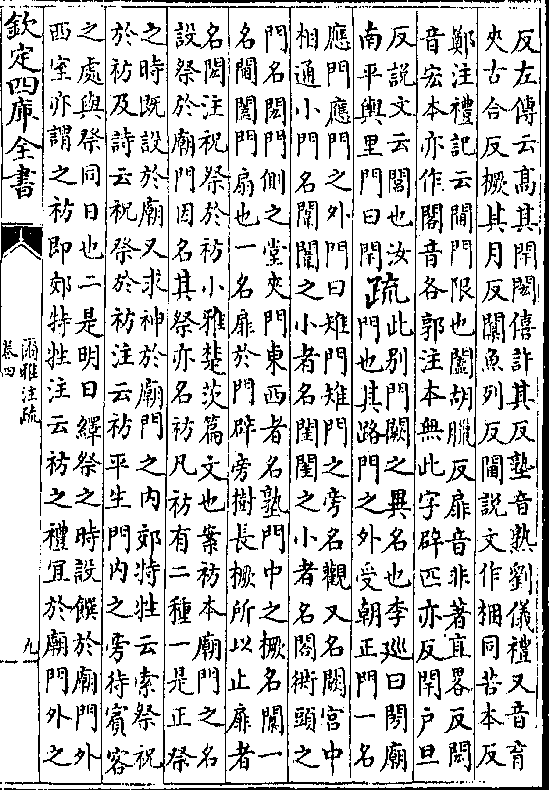 反左傳云高其閈閎僖許其反塾音孰劉儀禮又音育
夾古合反橛其月反闑魚列反閫說文作梱同苦本反
鄭注禮記云閫門限也闔胡臘反扉音非著直畧反閎
音宏本亦作閣音各郭注本無此字辟匹亦反閈戶旦
反說文云閭也汝
南平輿里門曰閈
疏
此别門闕之異名也李廵曰閍廟
門也其路門之外受朝正門一名
應門應門之外門曰雉門雉門之旁名觀又名闕宫中
相通小門名闈闈之小者名閨閨之小者名閤衖頭之
門名閎門側之堂夾門東西者名塾門中之橛名闑一
名閫闔門扇也一名扉於門辟旁樹長橛所以止扉者
名閎注祝祭於祊小雅楚茨篇文也案祊本廟門之名
設祭於廟門因名其祭亦名祊凡祊有二種一是正祭
之時既設於廟又求神於廟門之内郊特牲云索祭祝
於祊及詩云祝祭於祊注云祊平生門内之旁待賓客
之處與祭同日也二是明日繹祭之時設饌於廟門外
西室亦謂之祊即郊特牲注云祊之禮宜於廟門外之
欽定四庫全書
爾雅注疏
卷四
九